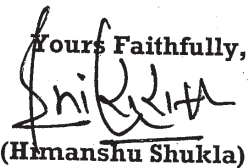 Yours Faithfully,
(Himanshu Shukla)